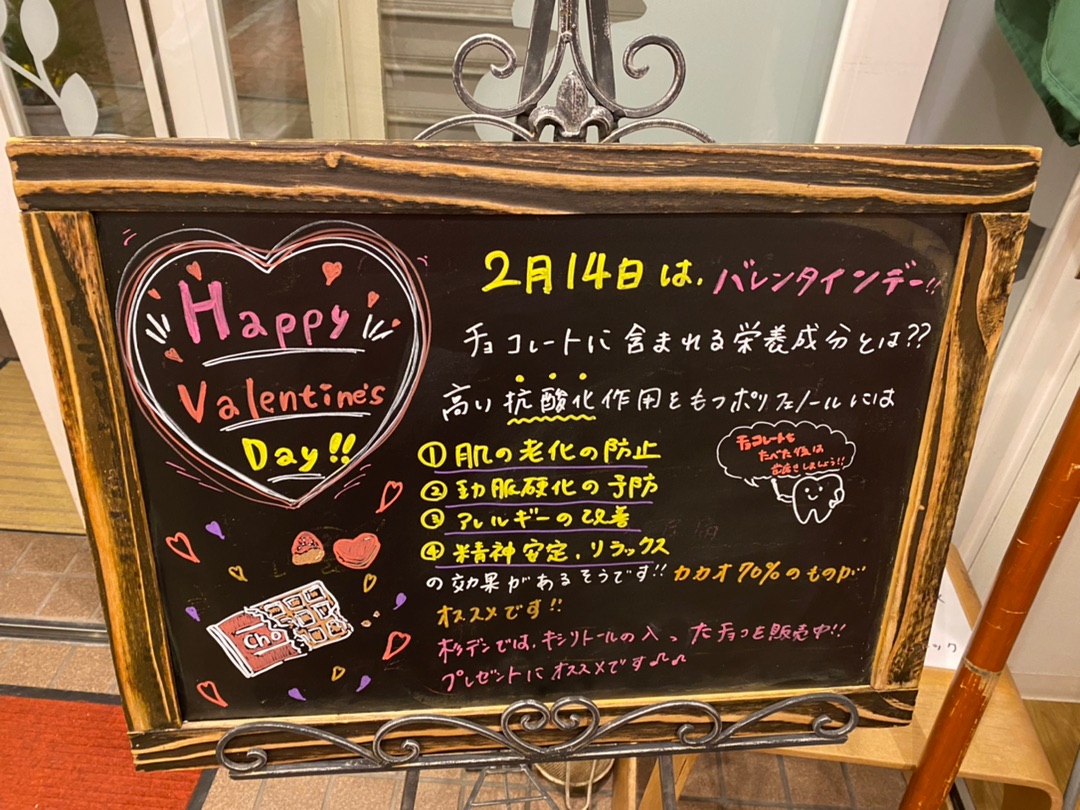 Happy
Valentine's
Day!!
2月14日は、バレンタインデー!!
チョコレートに含まれる栄養成分とは??
高い抗酸化作用をもつポリフェノールには
①肌の老化の防止
②動脈硬化の予防
③アレルギーの改善
④精神安定、リラックス
の効果があるそうです!!カカオ70%のものが
オススメです!!
杉デンでは、キシリトールの入ったチョコを販売中!!
プレゼントにオススメです♫♫
チョコレートを
たべた後は
歯磨きしましょう!!
Cho
ック